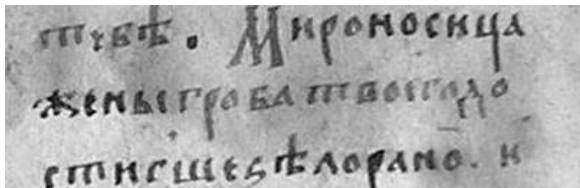 тебѣ. Мироносица
жены гроба твоего до
стигше ѕѣло рано. и